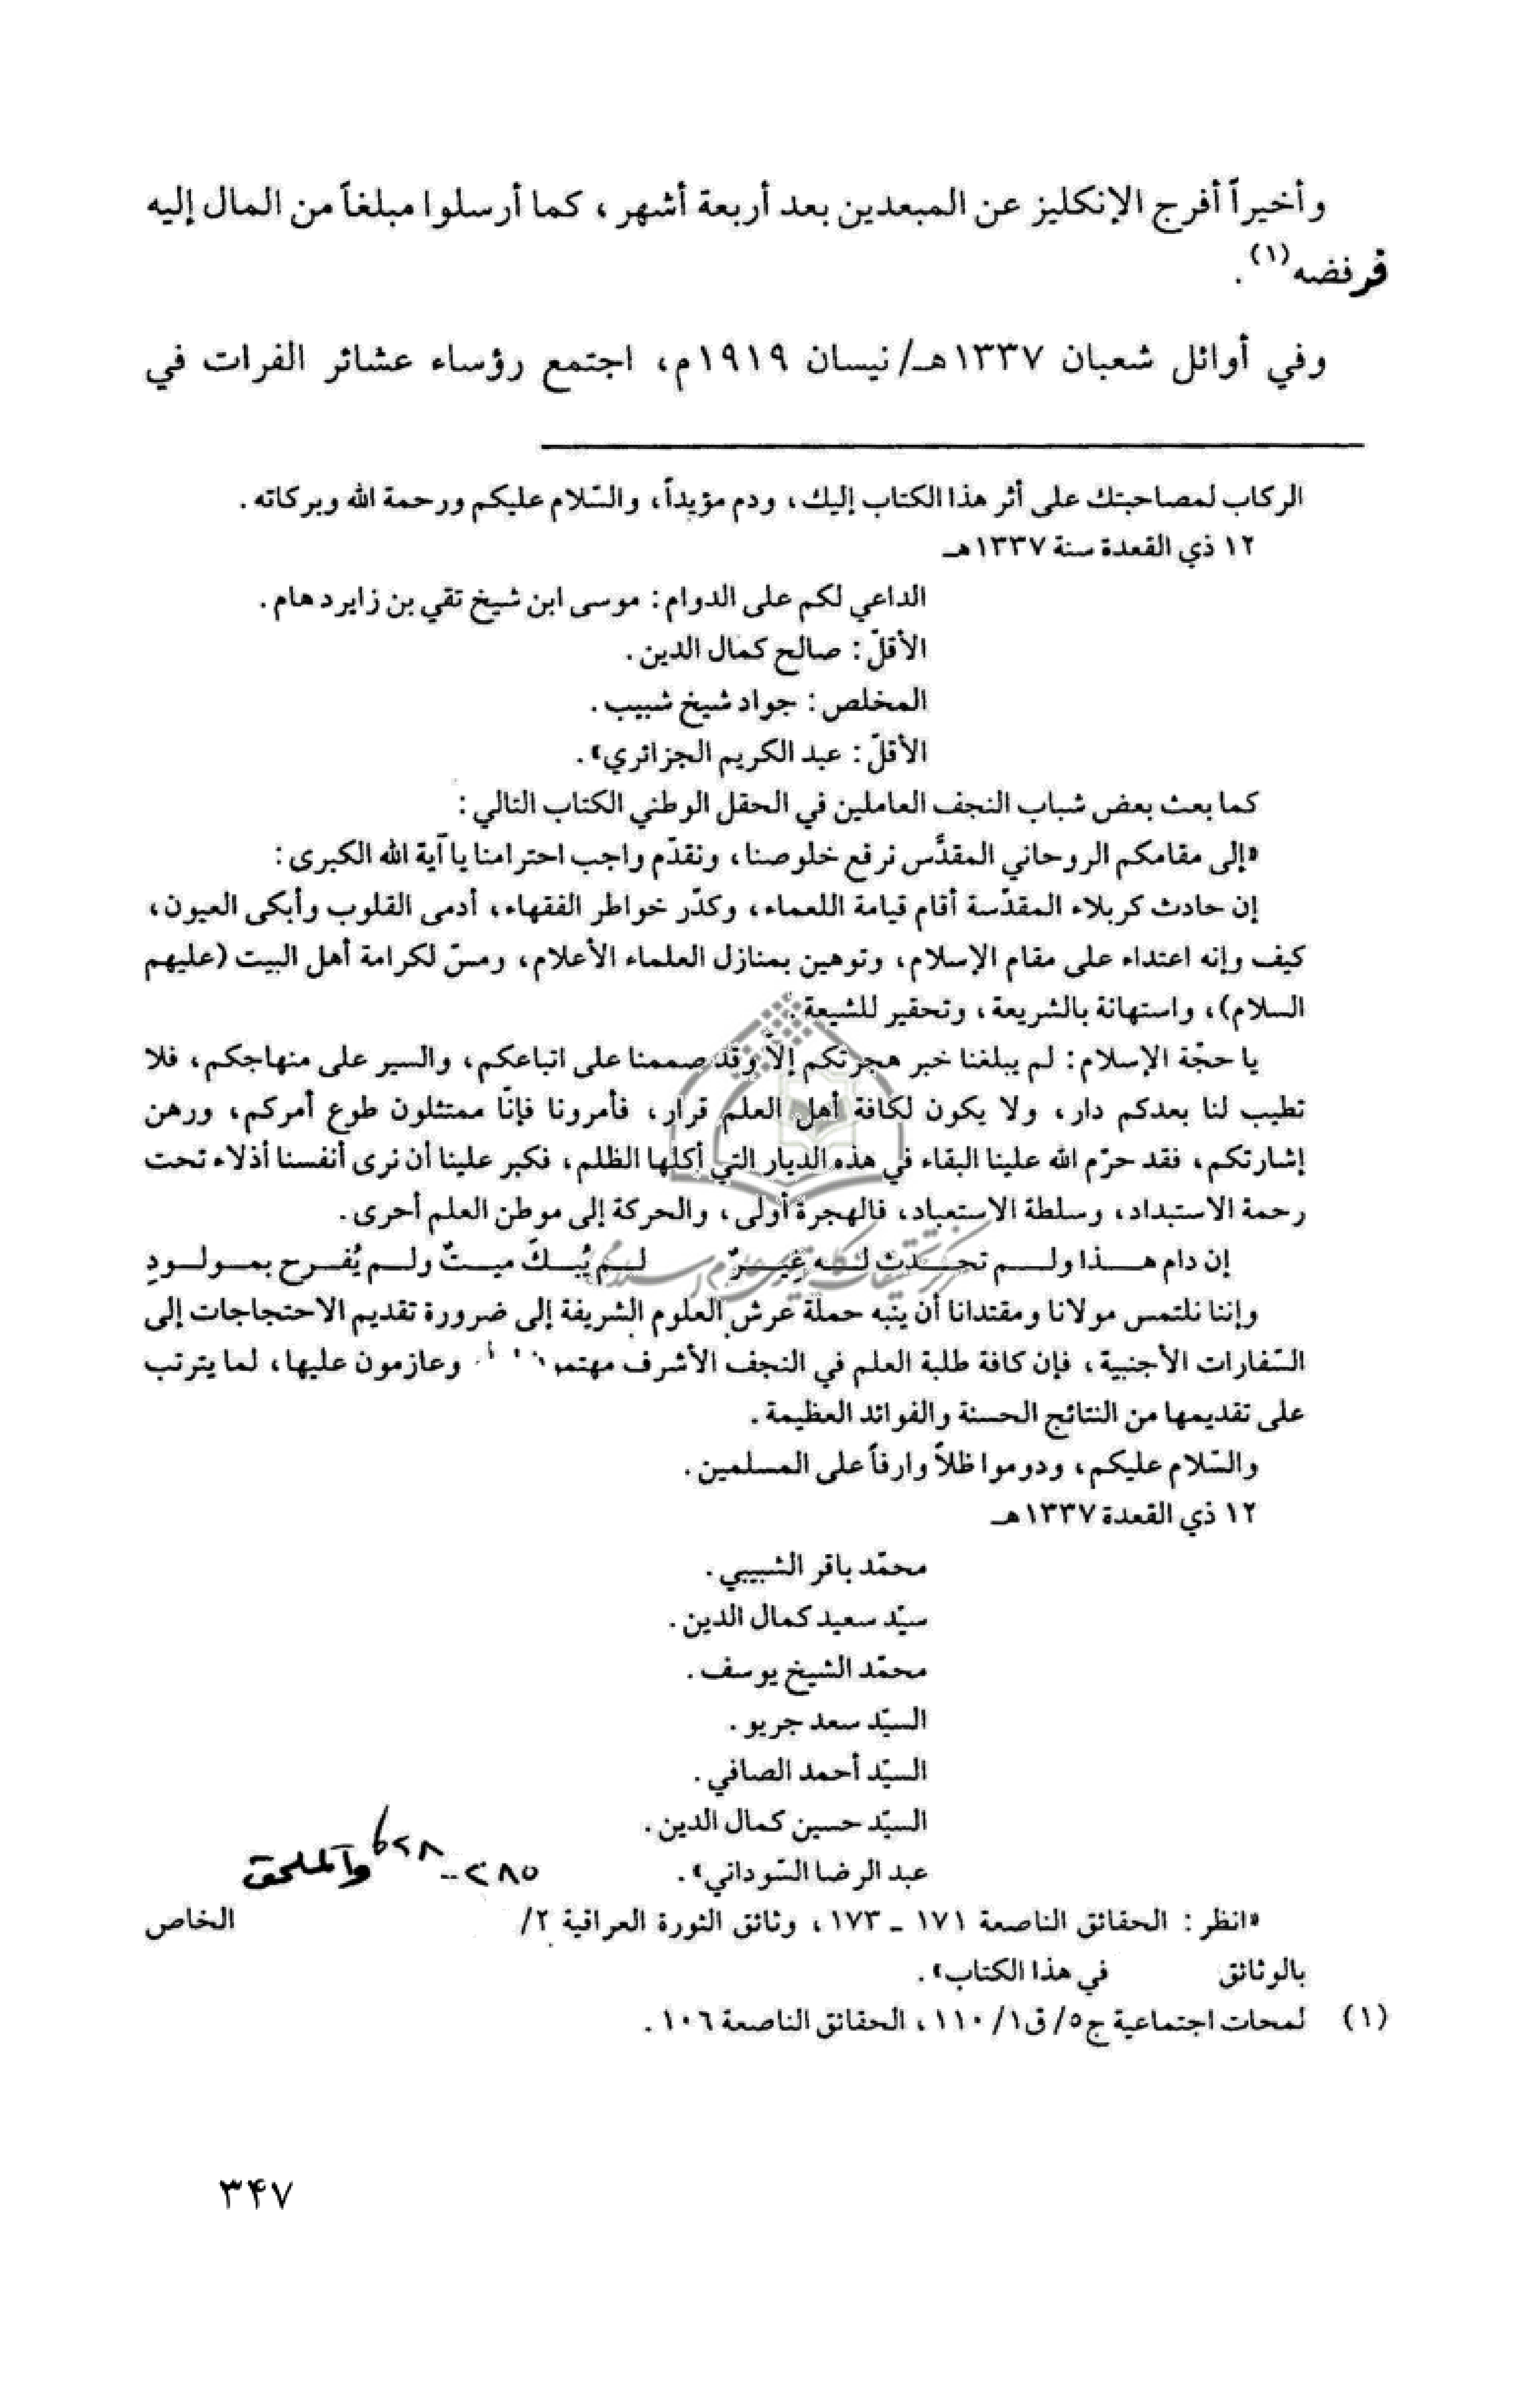 وأخيراً أفرج الإنكليز عن المبعدين بعد أربعة أشهر، كما أرسلوا مبلغاً من المال إليه
فرفضه(١).
وفي أوائل شعبان ١٣٣٧هـ/نيسان ١٩١٩م، اجتمع رؤساء عشائر الفرات في
الركاب لمصاحبتك على أثر هذا الكتاب إليك، ودم مؤيداً، والسّلام عليكم ورحمة الله وبركاته.
١٢ ذي القعدة سنة ١٣٣٧هـ
الداعي لكم على الدوام: موسى ابن شيخ تقي بن زاير دهام.
الأقلّ: صالح كمال الدين.
المخلص: جواد شيخ شبيب.
الأقلّ: عبد الكريم الجزائري».
كما بعث بعض شباب النجف العاملين في الحقل الوطني الكتاب التالي:
«إلى مقامكم الروحاني المقدَّس نرفع خلوصنا، ونقدّم واجب احترامنا يا آية الله الكبرى:
إن حادث كربلاء المقدّسة أقام قيامة اللعماء، وكدّر خواطر الفقهاء، أدمى القلوب وأبكى العيون،
كيف وإنه اعتداء على مقام الإسلام، وتوهين بمنازل العلماء الأعلام، ومسّ لكرامة أهل البيت (عليهم
السلام)، واستهانة بالشريعة، وتحقير للشيعة.
يا حجّة الإسلام: لم يبلغنا خبر هجرتكم إلاّ وقد صممنا على اتباعكم، والسير على منهاجكم، فلا
تطيب لنا بعدكم دار، ولا يكون لكافة أهل العلم قرار، فأمرونا فإنّا ممتثلون طوع أمركم، ورهن
إشارتكم، فقد حرّم الله علينا البقاء في هذه الديار التي أكلها الظلم، فكبر علينا أن نرى أنفسنا أذلاء تحت
رحمة الاستبداد، وسلطة الاستعباد، فالهجرة أولى، والحركة إلى موطن العلم أحرى.
إن دام هـذا ولـم تحـدث لـه غِيَـرٌ لـم يُبـكَ ميـتٌ ولـم يُفـرح بمـولـودِ
وإننا نلتمس مولانا ومقتدانا أن ينبه حملة عرش العلوم الشريفة إلى ضرورة تقديم الاحتجاجات إلى
السّفارات الأجنبية، فإن كافة طلبة العلم في النجف الأشرف وعازمون عليها، لما يترتب
على تقديمها من النتائج الحسنة والفوائد العظيمة.
والسّلام عليكم، ودوموا ظلاً وارفاً على المسلمين.
١٢ ذي القعدة ١٣٣٧هـ
محمّد باقر الشبيبي.
سيّد سعيد كمال الدين.
محمّد الشيخ يوسف.
السيّد سعد جريو.
السيّد أحمد الصافي.
السيّد حسين كمال الدين.
عبد الرضا السّوداني».
٢٨٥ - ٢٨٨ والملحق
«انظر: الحقائق الناصعة ١٧١ - ١٧٣، وثائق الثورة العراقية ٢/ الخاص
بالوثائق في هذا الكتاب».
(١) لمحات اجتماعية ج٥/ ق١/ ١١٠، الحقائق الناصعة ١٠٦.
٣۴٧